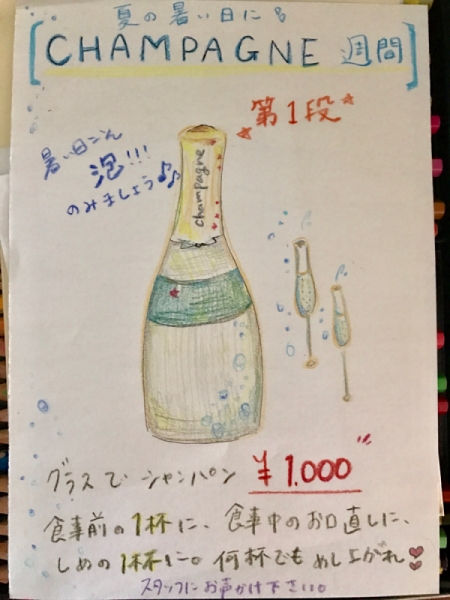 夏の暑い日に♪
CHAMPAGNE 週間
第1段
暑い日こそ
泡!!!
のみましょう♪♪
champagne
グラスで シャンパン ¥1.000
食事前の1杯に、食事中のお口直しに、
しめの1杯に。何杯でも めし上がれ
スタッフにお声かけ下さい。